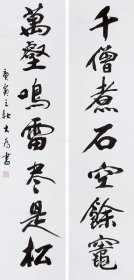 千僧煮石空餘竈
萬壑鳴雷尽是松
庚寅之秋 大為書